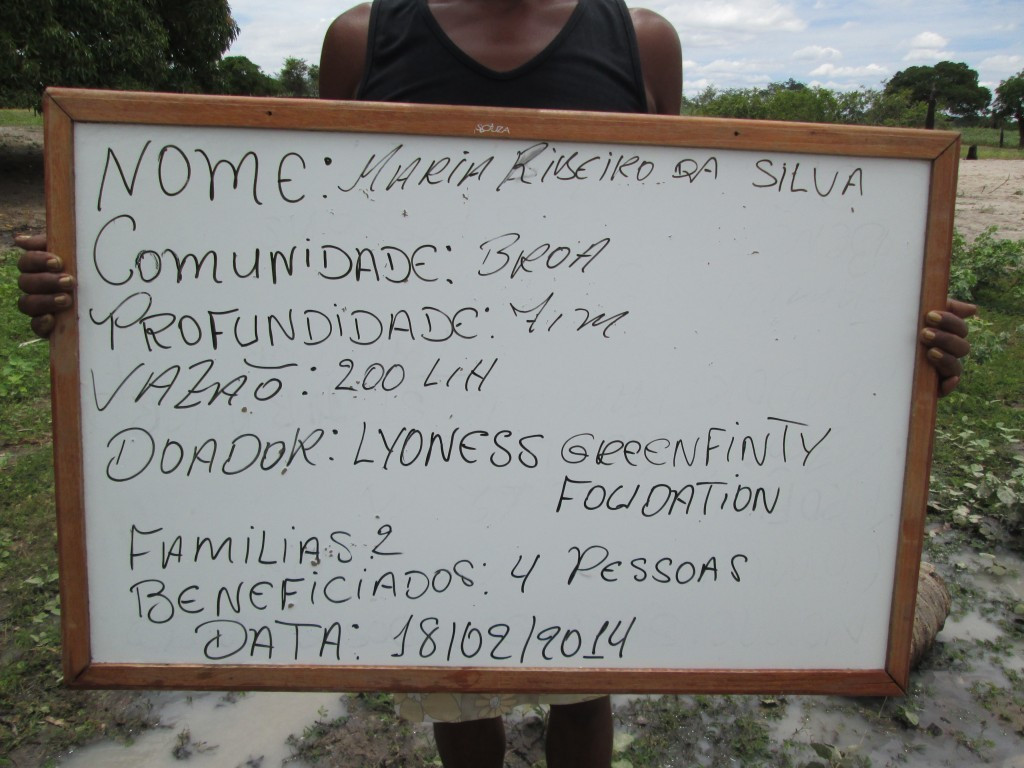 NOME: MARIA RIBEIRO DA SILVA
COMUNIDADE: BROA
PROFUNDIDADE: 71m
VAZÃO: 200 L/H
DOADOR: LYONESS GREENFINTY
FOUDATION
FAMILIAS 2
BENEFICIADOS: 4 PESSOAS
DATA: 18/02/2014